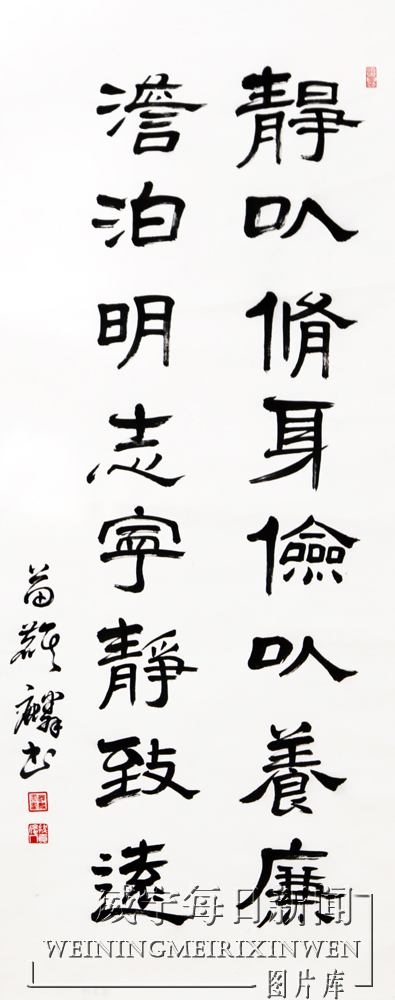 靜以脩身儉以養廉
澹泊明志寧靜致遠
苗麟书
威宁每日新闻
WEININGMEIRIXINWEN
图片库